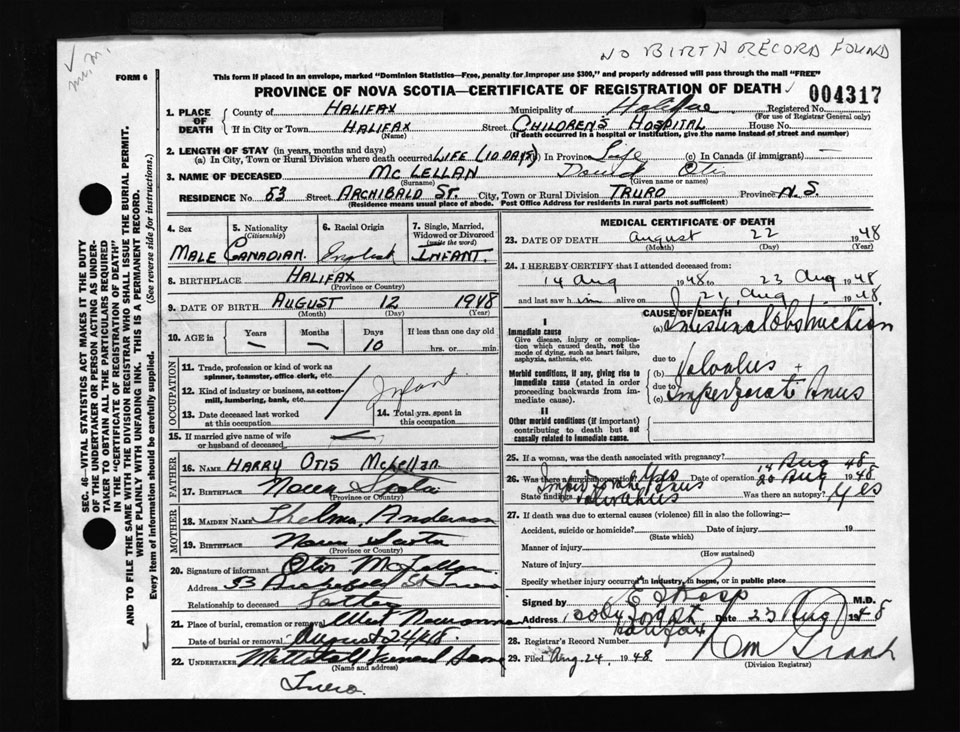 NO BIRTH RECORD FOUND
FORM 6
This form if placed in an envelope, marked "Dominion Statistics—Free, penalty for improper use $300," and properly addressed will pass through the mail "FREE"
PROVINCE OF NOVA SCOTIA—CERTIFICATE OF REGISTRATION OF DEATH 004317
1. PLACE OF DEATH County of HALIFAX Municipality of Halifax Registered No.
(For use of Registrar General only)
If in City or Town HALIFAX Street CHILDREN'S HOSPITAL House No.
(Name) (If death occurred in a hospital or institution, give the name instead of street and number)
2. LENGTH OF STAY (in years, months and days)
(a) In City, Town or Rural Division where death occurred LIFE (10 DAYS) (b) In Province Life (c) In Canada (if immigrant) —
3. NAME OF DECEASED MCLELLAN David Otis
(Surname) (Given name or names)
RESIDENCE No 53 Street ARCHIBALD ST. City, Town or Rural Division TRURO Province N.S.
(Residence means usual place of abode. Post Office Address for residents in rural parts not sufficient)
SEC. 46—VITAL STATISTICS ACT MAKES IT THE DUTY
OF THE UNDERTAKER OR PERSON ACTING AS UNDER-
TAKER TO OBTAIN ALL THE PARTICULARS REQUIRED
IN THE "CERTIFICATE OF REGISTRATION OF DEATH"
AND TO FILE THE SAME WITH THE DIVISION REGISTRAR WHO SHALL ISSUE THE BURIAL PERMIT.
WRITE PLAINLY WITH UNFADING INK. THIS IS A PERMANENT RECORD.
Every item of information should be carefully supplied. (See reverse side for instructions.)
4. Sex 5. Nationality (Citizenship) 6. Racial Origin 7. Single, Married, Widowed or Divorced (write the word)
MALE CANADIAN. English INFANT.
8. BIRTHPLACE HALIFAX
(Province or Country)
9. DATE OF BIRTH AUGUST 12 1948
(Month) (Day) (Year)
10. AGE in Years Months Days If less than one day old
— — 10 hrs. or min.
OCCUPATION
11. Trade, profession or kind of work as spinner, teamster, office clerk, etc.
12. Kind of industry or business, as cotton-mill, lumbering, bank, etc. Infant
13. Date deceased last worked at this occupation
14. Total yrs. spent in this occupation
15. If married give name of wife or husband of deceased
FATHER
16. NAME HARRY OTIS McLellan
17. BIRTHPLACE Nova Scotia
(Province or Country)
MOTHER
18. MAIDEN NAME Thelma Anderson
19. BIRTHPLACE Nova Scotia
(Province or Country)
20. Signature of informant Otis McLellan
Address 53 Archibald St Truro
Relationship to deceased Father
21. Place of burial, cremation or removal West
Date of burial or removal August 24/48
22. UNDERTAKER Mattatall Funeral Home
(Name and address)
Truro
MEDICAL CERTIFICATE OF DEATH
23. DATE OF DEATH August 22 1948
(Month) (Day) (Year)
24. I HEREBY CERTIFY that I attended deceased from:
14 Aug 1948 to 23 Aug 1948
and last saw him alive on 21 Aug 1948
CAUSE OF DEATH
I
Immediate cause (a) Intestinal Obstruction
Give disease, injury or complication which caused death, not the mode of dying, such as heart failure, asphyxia, asthenia, etc.
due to
Morbid conditions, if any, giving rise to immediate cause (stated in order proceeding backwards from immediate cause).
(b) Volvulus +
due to
(c) Imperforate Anus
II
Other morbid conditions (if important) contributing to death but not causally related to immediate cause.
25. If a woman, was the death associated with pregnancy?
14 Aug 48
26. Was there a surgical operation? Yes Date of operation 20 Aug 1948
Imperforate Anus
State findings Volvulus Was there an autopsy? Yes
27. If death was due to external causes (violence) fill in also the following:—
Accident, suicide or homicide? Date of injury 19
(State which)
Manner of injury
(How sustained)
Nature of injury
Specify whether injury occurred in industry, in home, or in public place
Signed by M.D.
Address Halifax Date 23 Aug 1948
28. Registrar's Record Number
29. Filed Aug. 24, 1948
(Division Registrar)